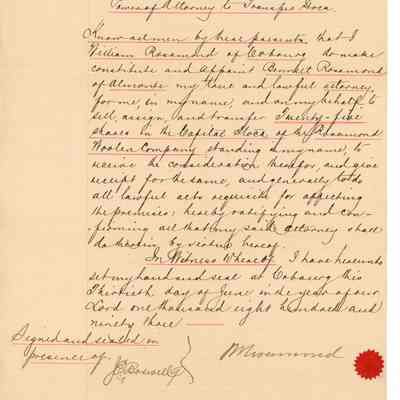 Power of Attorney to Transfer Stock.
Know all men by these presents, that I
William Rosamond of Cobourg do make
constitute and appoint Bennett Rosamond
of Almonte my true and lawful attorney,
for me, in my name, and on my behalf, to
sell, assign, and transfer Twenty-five
shares in the Capital Stock of the Rosamond
Woolen Company standing in my name, to
receive the consideration therefor, and give
receipt for the same, and generally to do
all lawful acts requisite for affecting
the premises; hereby ratifying and con-
firming all that my said attorney shall
do therein by virtue hereof.
In Witness Whereof I have hereunto
set my hand and seal at Cobourg this
Thirtieth day of June in the year of our
Lord one thousand eight hundred and
ninety three
Signed and sealed in
presence of
Rosamond